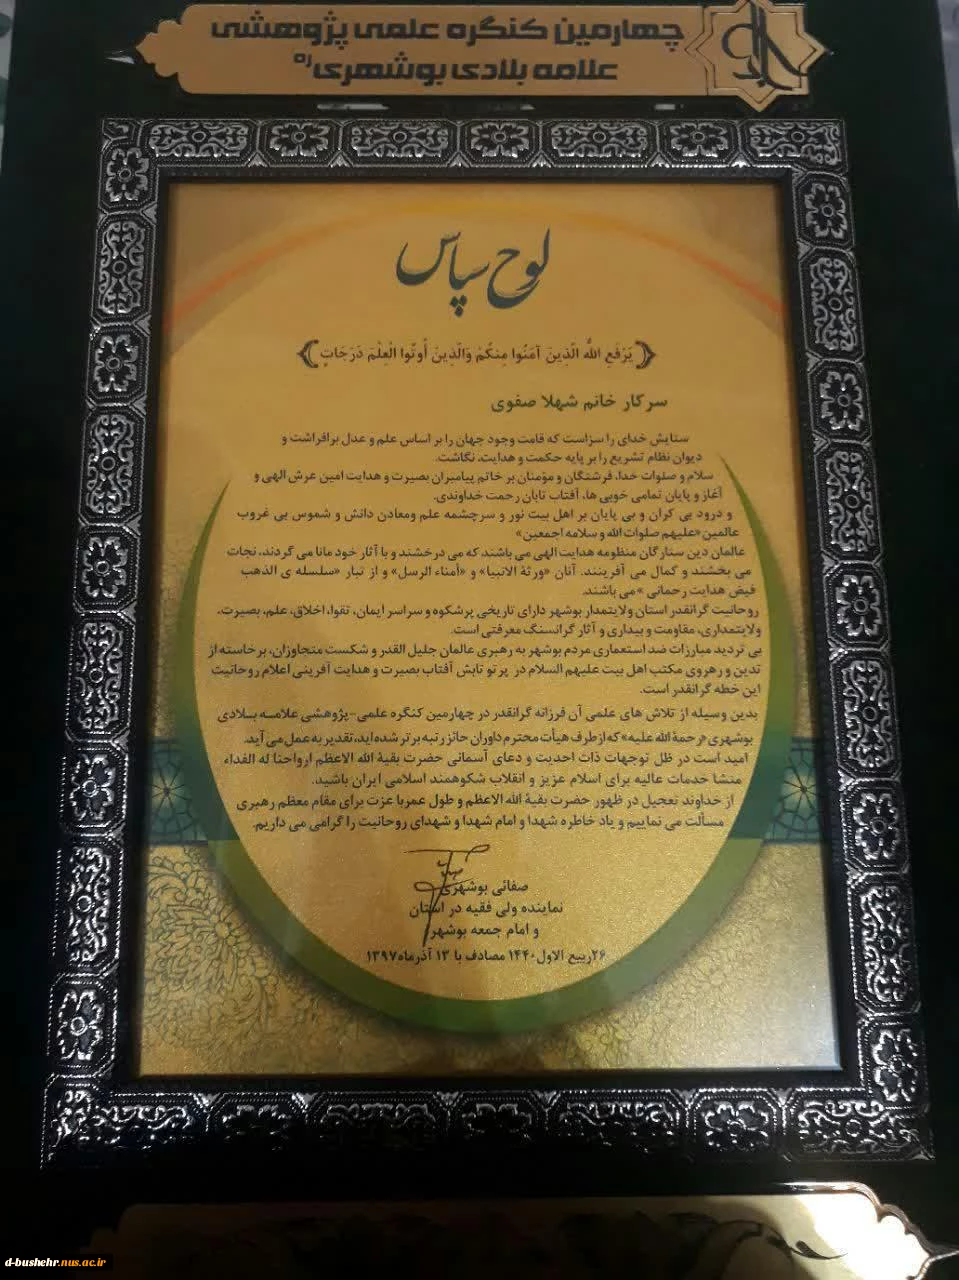 چهارمین کنگره علمی پژوهشی
علامه بلادی بوشهری ره
لوح سپاس
﴿يَرْفَعِ اللَّهُ الَّذِينَ آمَنُوا مِنكُمْ وَالَّذِينَ أُوتُوا الْعِلْمَ دَرَجَاتٍ﴾
سرکار خانم شهلا صفوی
ستایش خدای را سزاست که قامت وجود جهان را بر اساس علم و عدل برافراشت و
دیوان نظام تشریع را بر پایه حکمت و هدایت، نگاشت.
سلام و صلوات خدا، فرشتگان و مؤمنان بر خاتم پیامبران بصیرت و هدایت امین عرش الهی و
آغاز و پایان تمامی خوبی ها، آفتاب تابان رحمت خداوندی.
و درود بی کران و بی پایان بر اهل بیت نور و سرچشمه علم ومعادن دانش و شموس بی غروب
عالمین «علیهم صلوات الله و سلامه اجمعین»
عالمان دین ستارگان منظومه هدایت الهی می باشند که می درخشند و با آثار خود مانا می گردند، نجات
می بخشند و کمال می آفرینند. آنان «ورثة الانبیا» و «أمناء الرسل» و از تبار «سلسله ی الذهب
فیض هدایت رحمانی» می باشند.
روحانیت گرانقدر استان ولایتمدار بوشهر دارای تاریخی پرشکوه و سراسر ایمان، تقوا، اخلاق، علم، بصیرت،
ولایتمداری، مقاومت و بیداری و آثار گرانسنگ معرفتی است.
بی تردید مبارزات ضد استعماری مردم بوشهر به رهبری عالمان جلیل القدر و شکست متجاوزان، برخاسته از
تدین و رهروی مکتب اهل بیت علیهم السلام در پرتو تابش آفتاب بصیرت و هدایت آفرینی اعلام روحانیت
این خطه گرانقدر است.
بدین وسیله از تلاش های علمی آن فرزانه گرانقدر در چهارمین کنگره علمی-پژوهشی علامه بلادی
بوشهری «رحمة الله علیه» که از طرف هیأت محترم داوران حائز رتبه برتر شده اید، تقدیر به عمل می آید.
امید است در ظل توجهات ذات احدیت و دعای آسمانی حضرت بقیة الله الاعظم ارواحنا له الفداء
منشا خدمات عالیه برای اسلام عزیز و انقلاب شکوهمند اسلامی ایران باشید.
از خداوند تعجیل در ظهور حضرت بقیة الله الاعظم و طول عمر با عزت برای مقام معظم رهبری
مسألت می نماییم و یاد خاطره شهدا و امام شهدا و شهدای روحانیت را گرامی می داریم.
صفائی بوشهری
نماینده ولی فقیه در استان
و امام جمعه بوشهر
۲۶ربیع الاول۱۴۴۰ مصادف با ۱۳ آذرماه۱۳۹۷
d-bushehr.nus.ac.ir